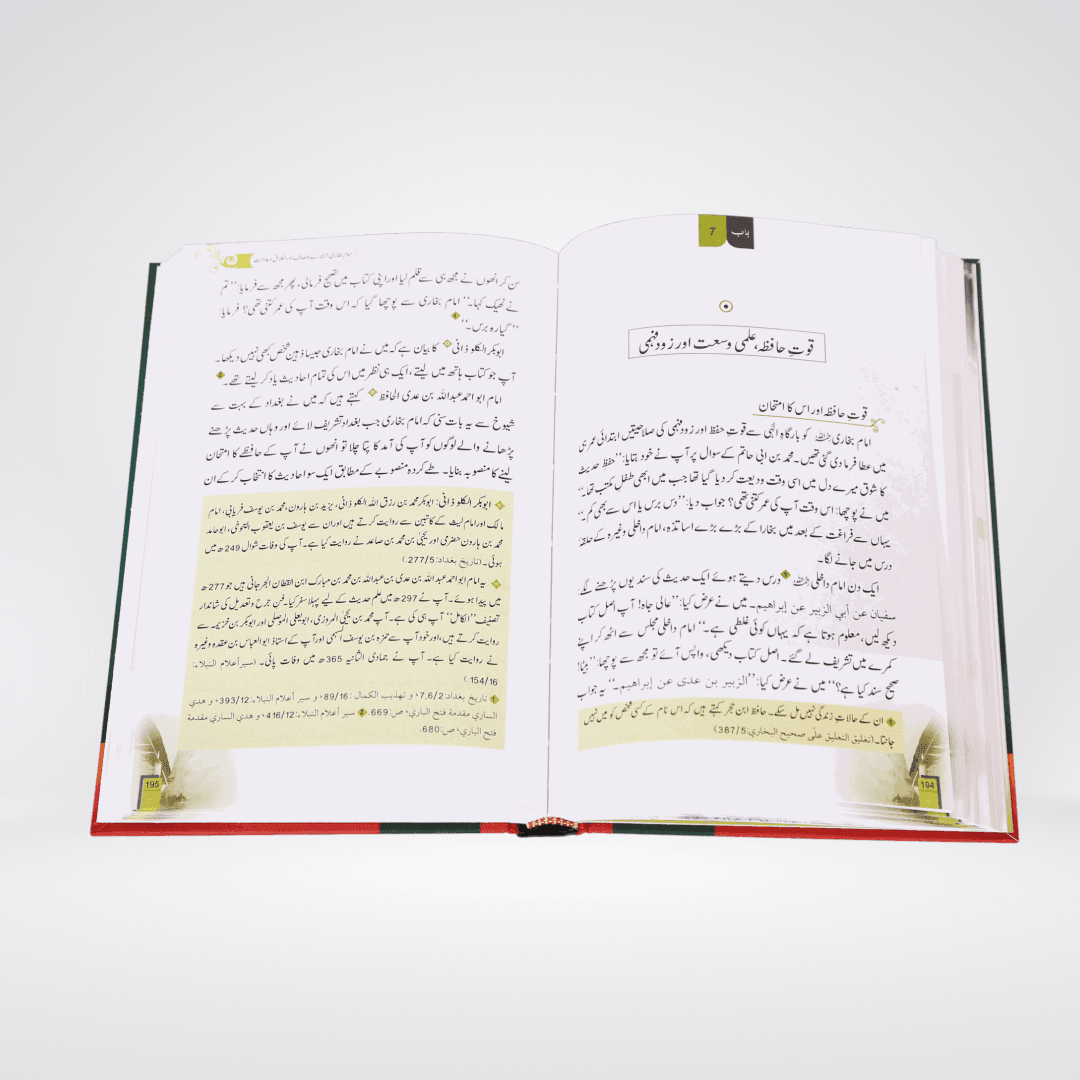 باب 7
قوتِ حافظہ، علمی وسعت اور زود فہمی
قوت حافظہ اور اس کا امتحان
امام بخاری رحمہ اللہ کو بارگاہِ الٰہی سے قوتِ حفظ اور زود فہمی کی صلاحیتیں ابتدائی عمر ہی
میں عطا فرما دی گئی تھیں۔ محمد بن ابی حاتم کے سوال پر آپ نے خود بتایا: ’’حفظ حدیث
کا شوق میرے دل میں اسی وقت ودیعت کر دیا گیا تھا جب میں ابھی طفلِ مکتب تھا۔‘‘
میں نے پوچھا: اس وقت آپ کی عمر کتنی تھی؟ جواب دیا: ’’دس برس یا اس سے بھی کم۔‘‘
یہاں سے فراغت کے بعد میں بخارا کے بڑے بڑے اساتذہ، امام داخلی وغیرہ کے حلقۂ
درس میں جانے لگا۔
ایک دن امام داخلی رحمہ اللہ 1 درس دیتے ہوئے ایک حدیث کی سند یوں پڑھنے لگے:
سفیان عن أبي الزبیر عن إبراهیم۔ میں نے عرض کیا: ’’عالی جاہ! آپ اصل کتاب
دیکھ لیں، معلوم ہوتا ہے کہ یہاں کوئی غلطی ہے۔‘‘ امام داخلی مجلس سے اٹھ کر اپنے
کمرے میں تشریف لے گئے۔ اصل کتاب دیکھی، واپس آئے تو مجھ سے پوچھا: ’’بیٹا!
صحیح سند کیا ہے؟‘‘ میں نے عرض کیا: ’’الزبیر بن عدی عن إبراهیم۔‘‘ یہ جواب
1 ان کے حالات زندگی نہیں مل سکے۔ حافظ ابن حجر کہتے ہیں کہ اس نام کے کسی شخص کو میں نہیں
جانتا۔ (تغلیق التعلیق علی صحیح البخاري: 387/5)
194
سن کر انھوں نے مجھ ہی سے قلم لیا اور اپنی کتاب میں تصحیح فرمالی، پھر مجھ سے فرمایا: ’’تم
نے ٹھیک کہا۔‘‘ امام بخاری سے پوچھا گیا کہ اس وقت آپ کی عمر کتنی تھی؟ فرمایا:
’’گیارہ برس۔‘‘ 1
ابوبکر الکلوذانی کا بیان ہے کہ میں نے امام بخاری جیسا ذہین شخص کبھی نہیں دیکھا۔
آپ جو کتاب ہاتھ میں لیتے، ایک ہی نظر میں اس کی تمام احادیث یاد کر لیتے تھے۔ 2
امام ابو احمد عبداللہ بن عدی الحافظ کہتے ہیں کہ میں نے بغداد کے بہت سے
شیوخ سے یہ بات سنی کہ امام بخاری جب بغداد تشریف لائے اور وہاں حدیث پڑھنے
پڑھانے والے لوگوں کو آپ کی آمد کا پتا چلا تو انھوں نے آپ کے حافظے کا امتحان
لینے کا منصوبہ بنایا۔ طے کردہ منصوبے کے مطابق ایک سو احادیث کا انتخاب کر کے ان
ابوبکر الکلوذانی: ابوبکر محمد بن رزق اللہ الکلوذانی، یزید بن ہارون، محمد بن یوسف فریابی، امام
مالک اور امام لیث کے کاتبین سے روایت کرتے ہیں اور ان سے یوسف بن یعقوب التنوخی، ابو حامد
محمد بن ہارون حضری اور یحیٰی بن محمد بن صاعد نے روایت کیا ہے۔ آپ کی وفات شوال 249ھ میں
ہوئی۔ (تاریخ بغداد: 277/5.)
یہ امام ابو احمد عبداللہ بن عدی بن عبداللہ بن محمد بن مبارک ابن القطان الجرجانی ہیں جو 277ھ
میں پیدا ہوئے۔ آپ نے 297ھ میں علم حدیث کے لیے پہلا سفر کیا۔ فن جرح و تعدیل کی شاندار
تصنیف ’’الکامل‘‘ آپ ہی کی ہے۔ آپ محمد بن یحیٰی المروزی، ابو یعلی الموصلی اور ابوبکر بن خزیمہ سے
روایت کرتے ہیں، اور خود آپ سے حمزہ بن یوسف السہمی اور آپ کے استاذ ابو العباس بن عقدہ وغیرہ
نے روایت کیا ہے۔ آپ نے جمادی الثانیہ 365ھ میں وفات پائی۔ (سیر أعلام النبلاء:
154/16.)
1 تاریخ بغداد: 7,6/2، و تهذیب الکمال: 89/16، و سیر أعلام النبلاء: 393/12، و هدي
الساري مقدمة فتح الباري، ص: 669. 2 سیر أعلام النبلاء: 416/12، و هدي الساري مقدمة
فتح الباري، ص: 680.
195